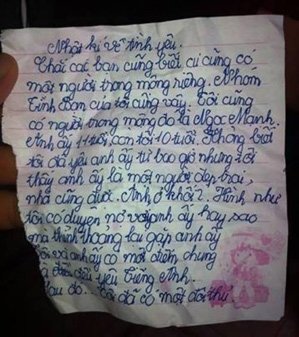 Nhật kí về tình yêu.
Chắc các bạn cũng biết cứ cũng có
một người trong mộng riêng. Nhóm
Tình Bạn của tôi cũng vậy. Tôi cũng
có người trong mộng đó là Ngọc Mạnh.
Anh ấy 11 tuổi, còn tôi 10 tuổi. Không biết
tôi đã yêu anh ấy từ bao giờ nhưng tôi
thấy anh ấy là một người đẹp trai,
nhà cũng được. Anh, ở khối 2. Hình như
tôi có duyên nợ với anh ấy hay sao
mà thỉnh thoảng lại gặp anh ấy
Tôi và anh ấy có một điểm chung
là đều yêu Tiếng Anh.
Sau đó... Tôi đã có một đối thủ